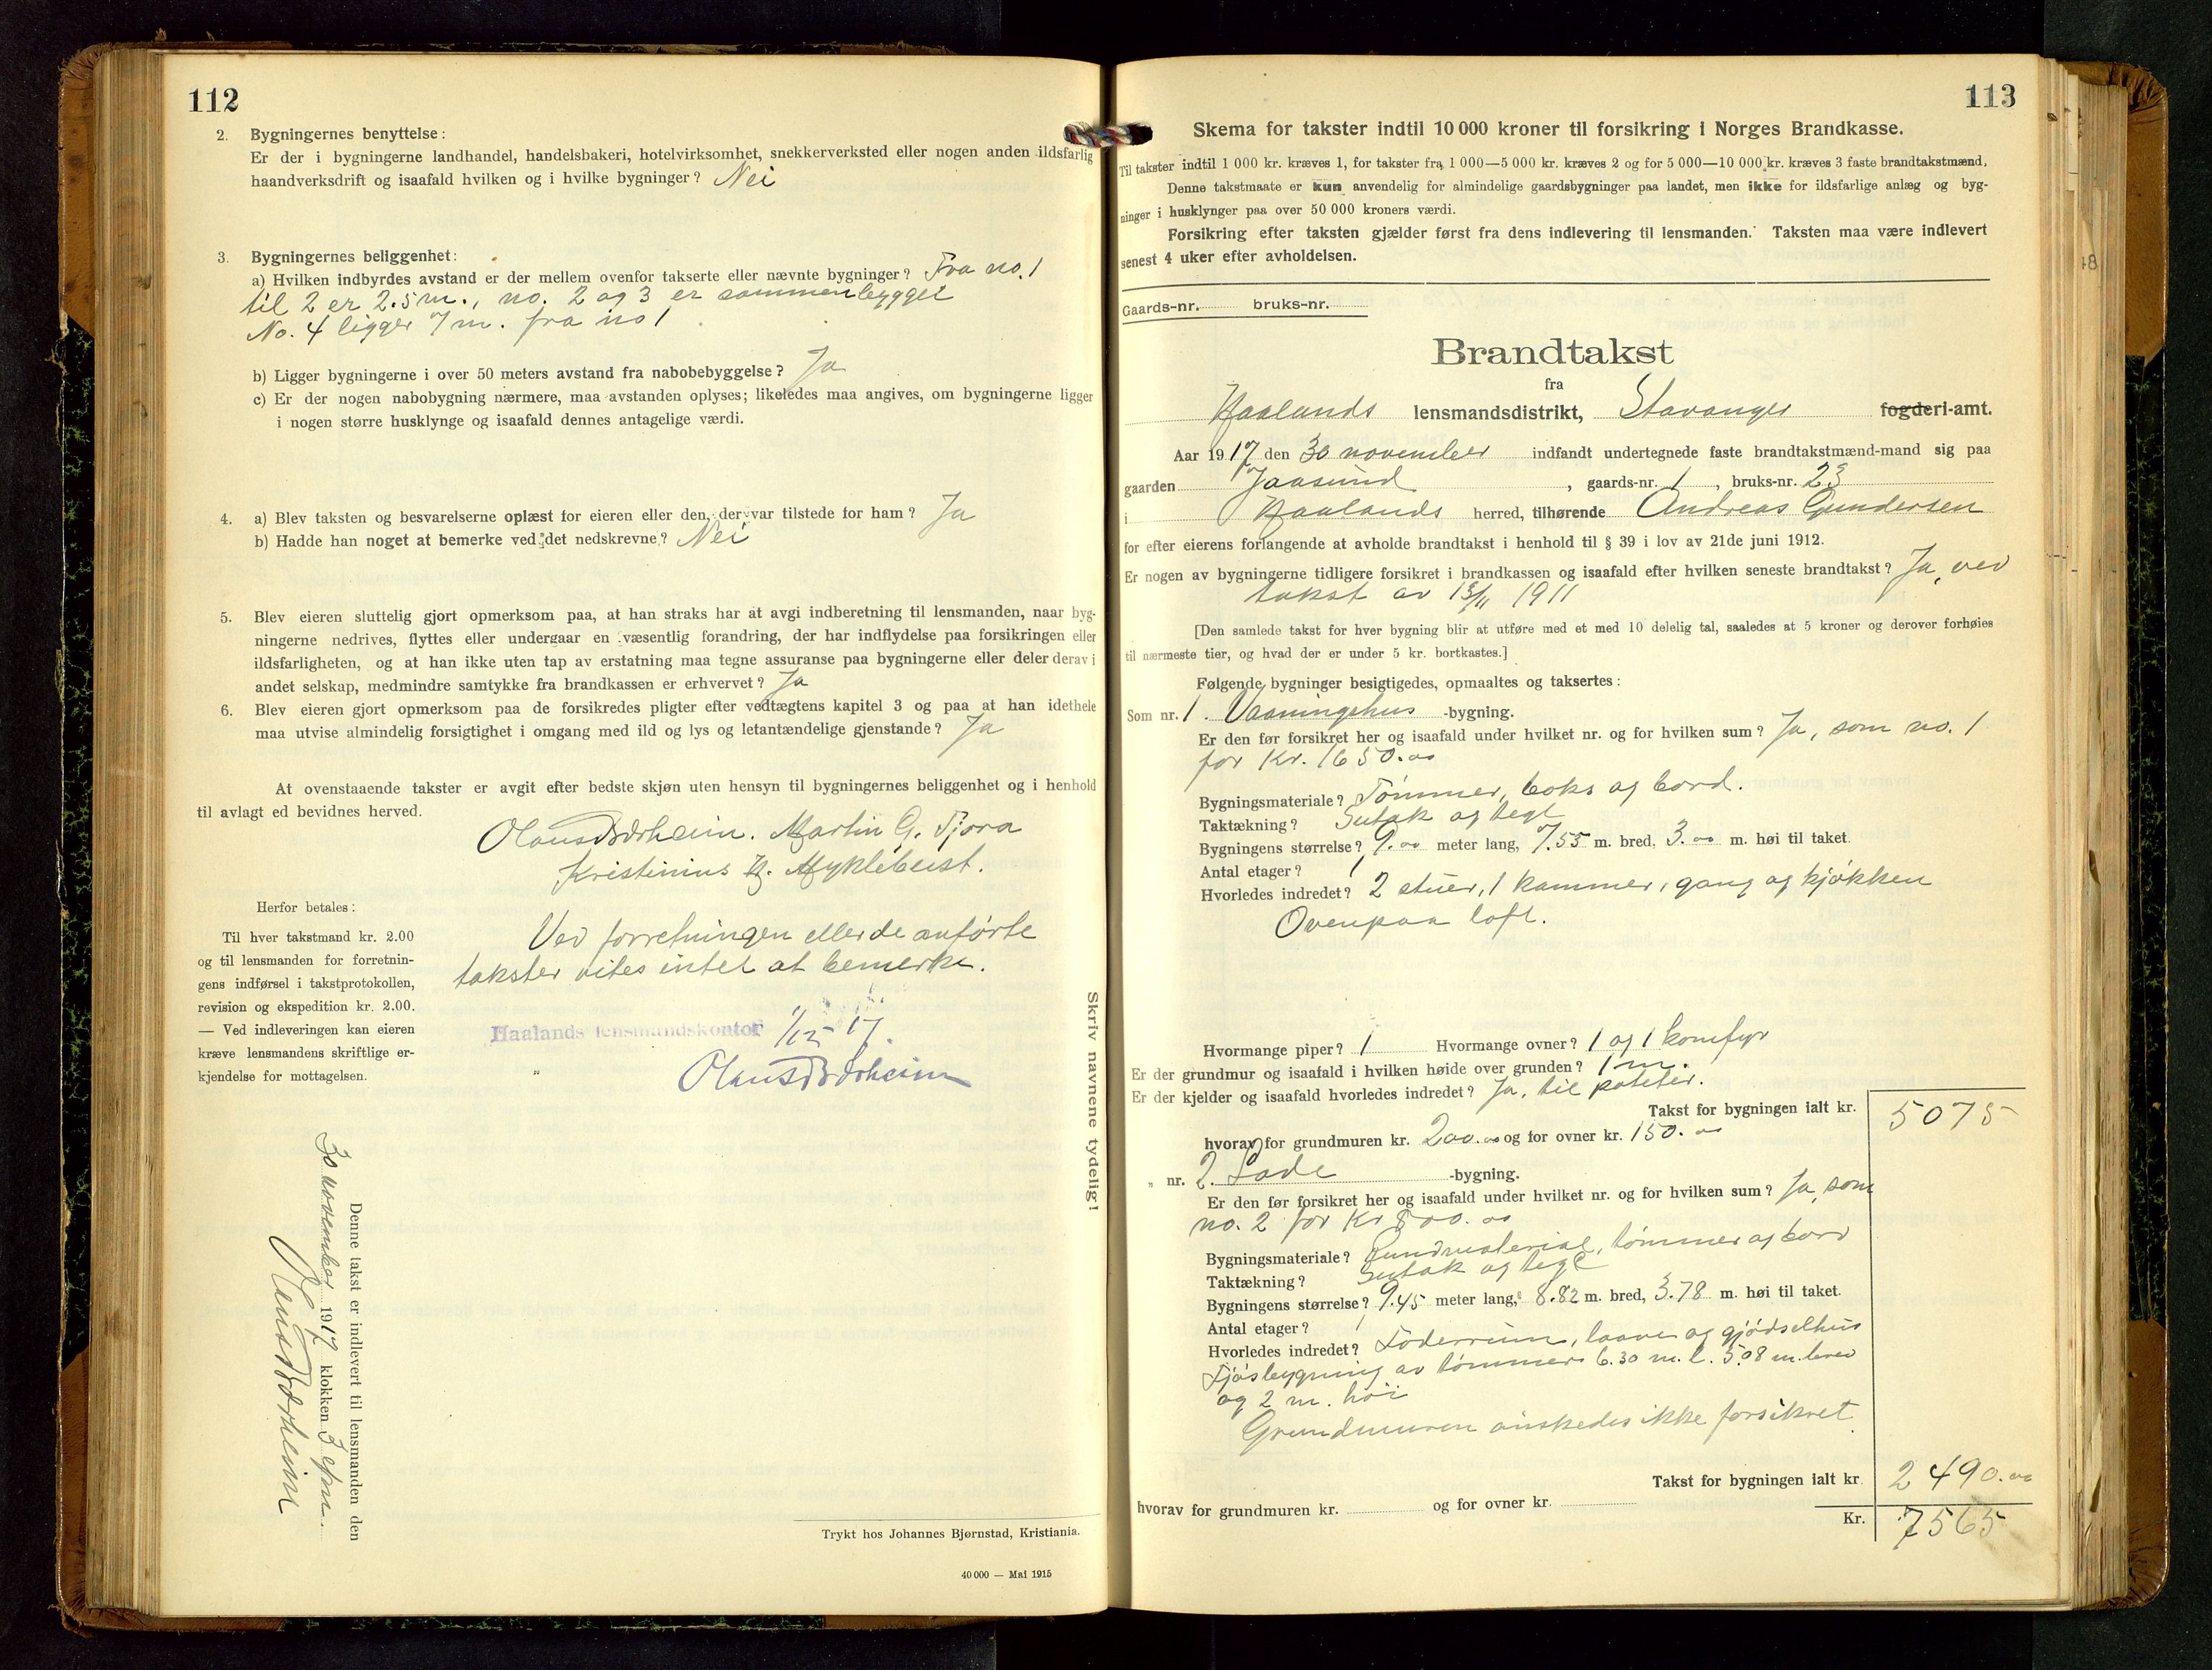 112
2. Bygningernes benyttelse:
Er der i bygningerne landhandel, handelsbakeri, hotelvirksomhet, snekkerverksted eller nogen anden ildsfarlig
haandverksdrift og isaafald hvilken og i hvilke bygninger? Nei
3. Bygningernes beliggenhet:
a) Hvilken indbyrdes avstand er der mellem ovenfor takserte eller nævnte bygninger? Fra no. 1
til 2 er 2.5 m., no. 2 og 3 er sammenbygget
No. 4 ligger 7 m. fra no 1
b) Ligger bygningerne i over 50 meters avstand fra nabobebyggelse? Ja
c) Er der nogen nabobygning nærmere, maa avstanden oplyses; likeledes maa angives, om bygningerne ligger
i nogen større husklynge og isaafald dennes antagelige værdi.
4. a) Blev taksten og besvarelserne oplæst for eieren eller den, der var tilstede for ham? Ja
b) Hadde han noget at bemerke ved det nedskrevne? Nei
5. Blev eieren sluttelig gjort opmerksom paa, at han straks har at avgi indberetning til lensmanden, naar byg-
ningerne nedrives, flyttes eller undergaar en væsentlig forandring, der har indflydelse paa forsikringen eller
ildsfarligheten, og at han ikke uten tap av erstatning maa tegne assuranse paa bygningerne eller deler derav i
andet selskap, medmindre samtykke fra brandkassen er erhvervet? Ja
6. Blev eieren gjort opmerksom paa de forsikredes pligter efter vedtægtens kapitel 3 og paa at han idethele
maa utvise almindelig forsigtighet i omgang med ild og lys og letantændelige gjenstande? Ja
At ovenstaaende takster er avgit efter bedste skjøn uten hensyn til bygningernes beliggenhet og i henhold
til avlagt ed bevidnes herved.
Martin G. Tjora
Kristinius H. Myklebust.
Herfor betales:
Til hver takstmand kr. 2.00
og til lensmanden for forretnin-
gens indførsel i takstprotokollen,
revision og ekspedition kr. 2.00.
— Ved indleveringen kan eieren
kræve lensmandens skriftlige er-
kjendelse for mottagelsen.
Ved forretningen eller de anførte
takster vites intet at bemerke.
Haalands lensmandskontor 1/12 17.
Skriv navnene tydelig!
Denne takst er indlevert til lensmanden den
30 november 1917 klokken 3 efm.
Trykt hos Johannes Bjørnstad, Kristiania.
40 000 — Mai 1915
113
Skema for takster indtil 10 000 kroner til forsikring i Norges Brandkasse.
Til takster indtil 1 000 kr. kræves 1, for takster fra 1 000—5 000 kr. kræves 2 og for 5 000—10 000 kr. kræves 3 faste brandtakstmænd.
Denne takstmaate er kun anvendelig for almindelige gaardsbygninger paa landet, men ikke for ildsfarlige anlæg og byg-
ninger i husklynger paa over 50 000 kroners værdi.
Forsikring efter taksten gjælder først fra dens indlevering til lensmanden. Taksten maa være indlevert
senest 4 uker efter avholdelsen.
Gaards-nr. bruks-nr.
Brandtakst
fra
Haalands lensmandsdistrikt, Stavanger fogderi-amt.
Aar 1917 den 30 november indfandt undertegnede faste brandtakstmænd-mand sig paa
gaarden Jaasund, gaards-nr. 1, bruks-nr. 23
i Haalands herred, tilhørende Andreas Gundersen
for efter eierens forlangende at avholde brandtakst i henhold til § 39 i lov av 21de juni 1912.
Er nogen av bygningerne tidligere forsikret i brandkassen og isaafald efter hvilken seneste brandtakst? Ja, ved
takst av 13/11 1911
[Den samlede takst for hver bygning blir at utføre med et med 10 delelig tal, saaledes at 5 kroner og derover forhøies
til nærmeste tier, og hvad der er under 5 kr. bortkastes.]
Følgende bygninger besigtigedes, opmaaltes og taksertes:
Som nr. 1. Vaaningshus -bygning.
Er den før forsikret her og isaafald under hvilket nr. og for hvilken sum? Ja, som no. 1
for Kr. 1650.00
Bygningsmateriale? Tømmer, boks og bord.
Taktækning? Sutak og tegl
Bygningens størrelse? 9.00 meter lang, 7.55 m. bred, 3.00 m. høi til taket.
Antal etager? 1
Hvorledes indredet? 2 stuer, 1 kammer, gang og kjøkken
Ovenpaa loft.
Hvormange piper? 1 Hvormange ovner? 1 og 1 komfyr
Er der grundmur og isaafald i hvilken høide over grunden? 1 m.
Er der kjelder og isaafald hvorledes indredet? Ja, til poteter.
Takst for bygningen ialt kr. 5075
hvorav for grundmuren kr. 200.00 og for ovner kr. 150.00
„ nr. 2. Lade -bygning.
Er den før forsikret her og isaafald under hvilket nr. og for hvilken sum? Ja, som
no. 2 for Kr 800.00
Bygningsmateriale? Bundmateriale, tømmer og bord
Taktækning? Sutak og tegl
Bygningens størrelse? 9.45 meter lang, 8.82 m. bred, 3.78 m. høi til taket.
Antal etager? 1
Hvorledes indredet? Foderrum, laave og gjødselhus
Fjøsbygning av tømmer 6.30 m. l. 5.08 m. bred
og 2 m. høi
Grundmuren ønskedes ikke forsikret
Takst for bygningen ialt kr. 2490.00
hvorav for grundmuren kr. og for ovner kr.
Kr. 7565